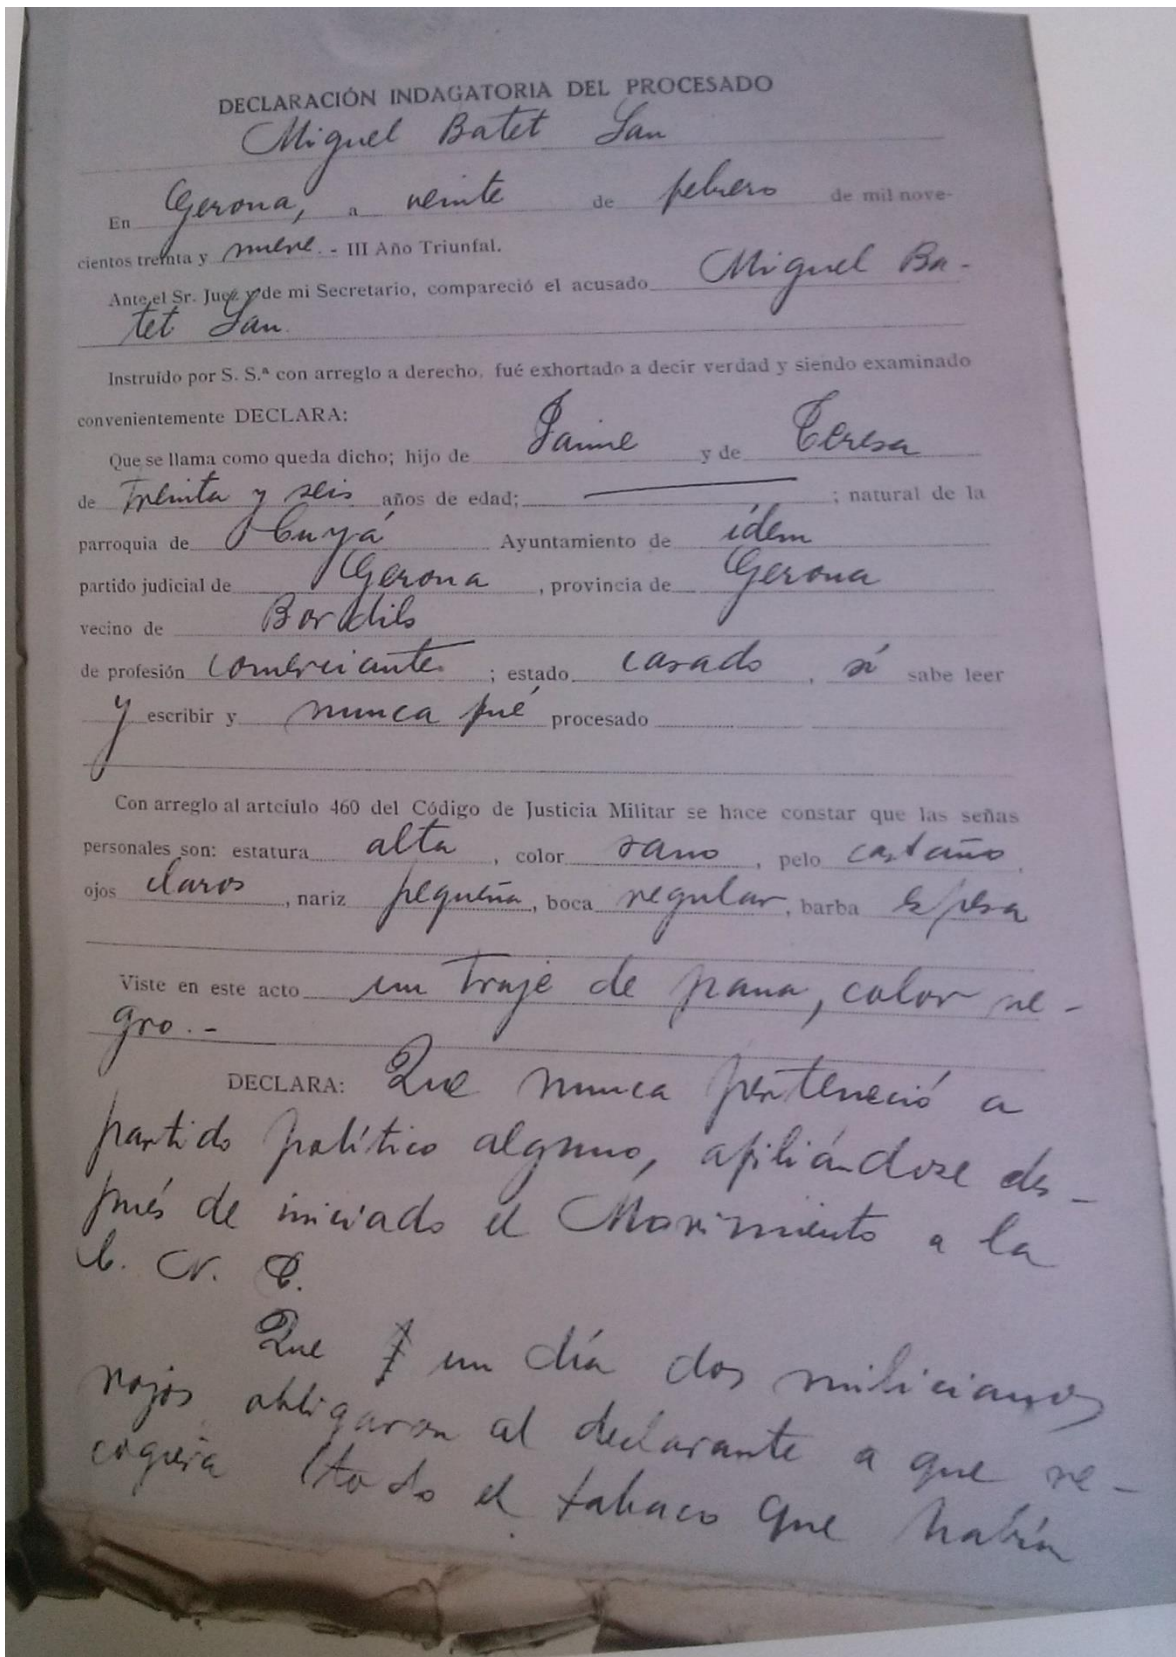 DECLARACIÓN INDAGATORIA DEL PROCESADO
Miguel Batet San
En Gerona, a veinte de febrero de mil nove-
cientos treinta y nueve. - III Año Triunfal.
Ante el Sr. Juez y de mi Secretario, compareció el acusado Miguel Ba-
tet San.
Instruído por S. S.ª con arreglo a derecho, fué exhortado a decir verdad y siendo examinado
convenientemente DECLARA:
Que se llama como queda dicho; hijo de Jaime y de Teresa
de treinta y seis años de edad; ; natural de la
parroquia de Cuyá Ayuntamiento de idem
partido judicial de Gerona, provincia de Gerona
vecino de Bordils
de profesión comerciante ; estado casado, sí sabe leer
y escribir y nunca fué procesado
Con arreglo al artcíulo 460 del Código de Justicia Militar se hace constar que las señas
personales son: estatura alta, color sano, pelo castaño,
ojos claros, nariz pequeña, boca regular, barba espesa
Viste en este acto un traje de pana, color ne-
gro.-
DECLARA: Que nunca perteneció a
partido político alguno, afiliándose des-
pués de iniciado el Movimiento a la
C. N. T.
Que un día dos milicianos
rojos obligaron al declarante a que re-
cogiera todo el tabaco que había